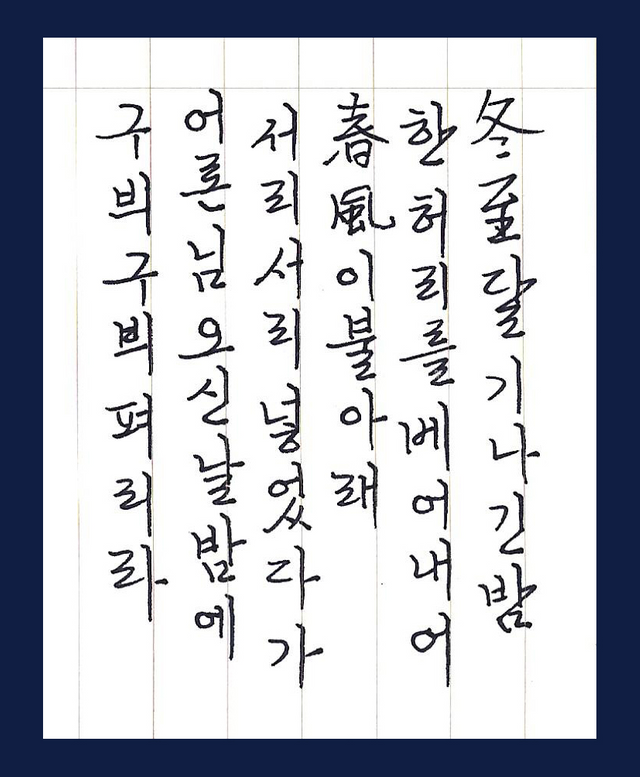 冬至달기나긴밤
한허리를베어내어
春風이불아래
서리서리넣었다가
어론님오신날밤에
구븨구븨펴리라.